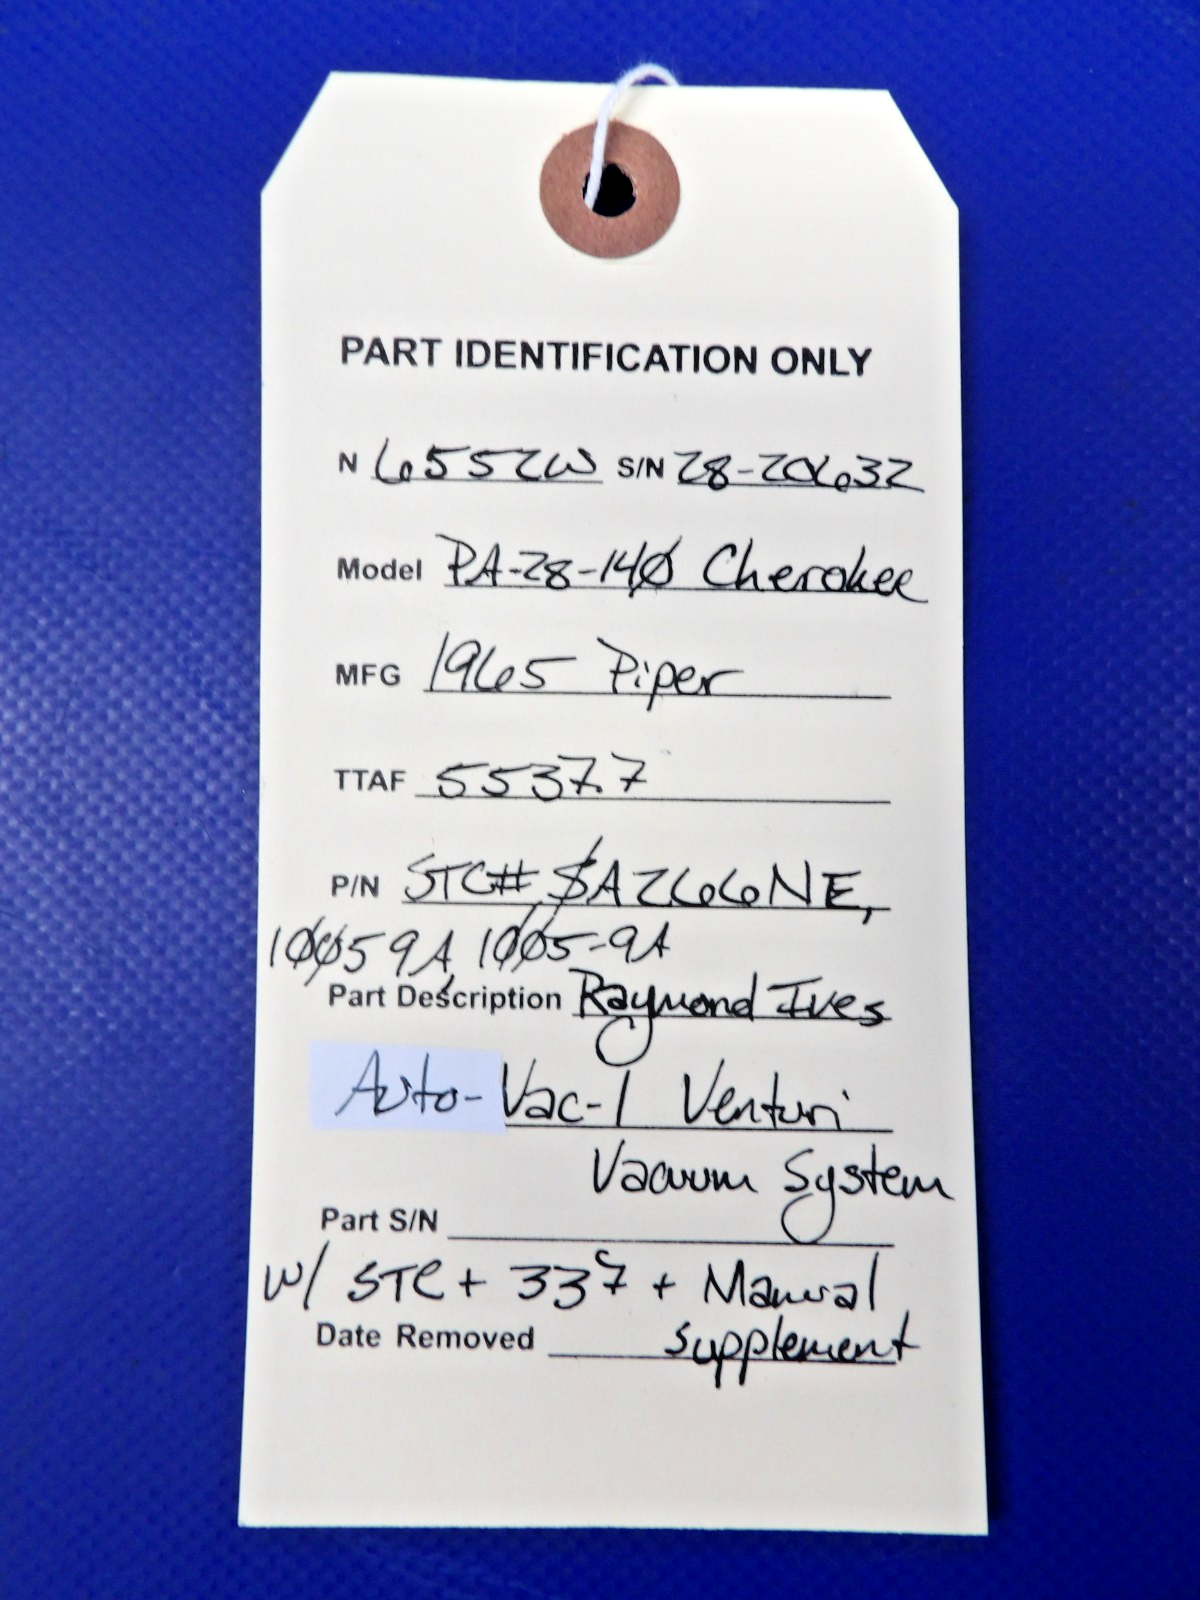 PART IDENTIFICATION ONLY
N 6552W S/N 28-20632
Model PA-28-140 Cherokee
MFG 1965 Piper
TTAF 5537.7
P/N STC# SA266NE,
10059A, 1005-9A
Part Description Raymond Ives
Auto-Vac-1 Venturi
Vacuum System
Part S/N
W/ STC + 337 + Manual
Date Removed supplement